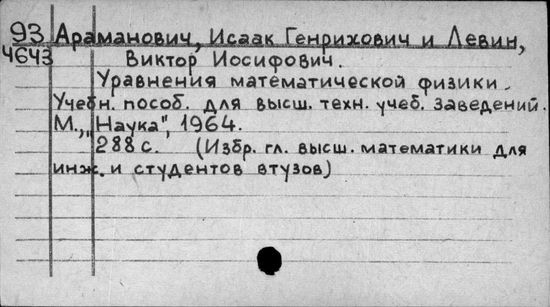 93 Араманович, Исаак Генрихович и Левин,
4643 Виктор Иосифович.
Уравнения математической физики.
Учебн. пособ. для высш. техн. учеб. заведений.
М., „Наука", 1964.
288 с. (Избр. гл. высш. математики для
инж. и студентов втузов)